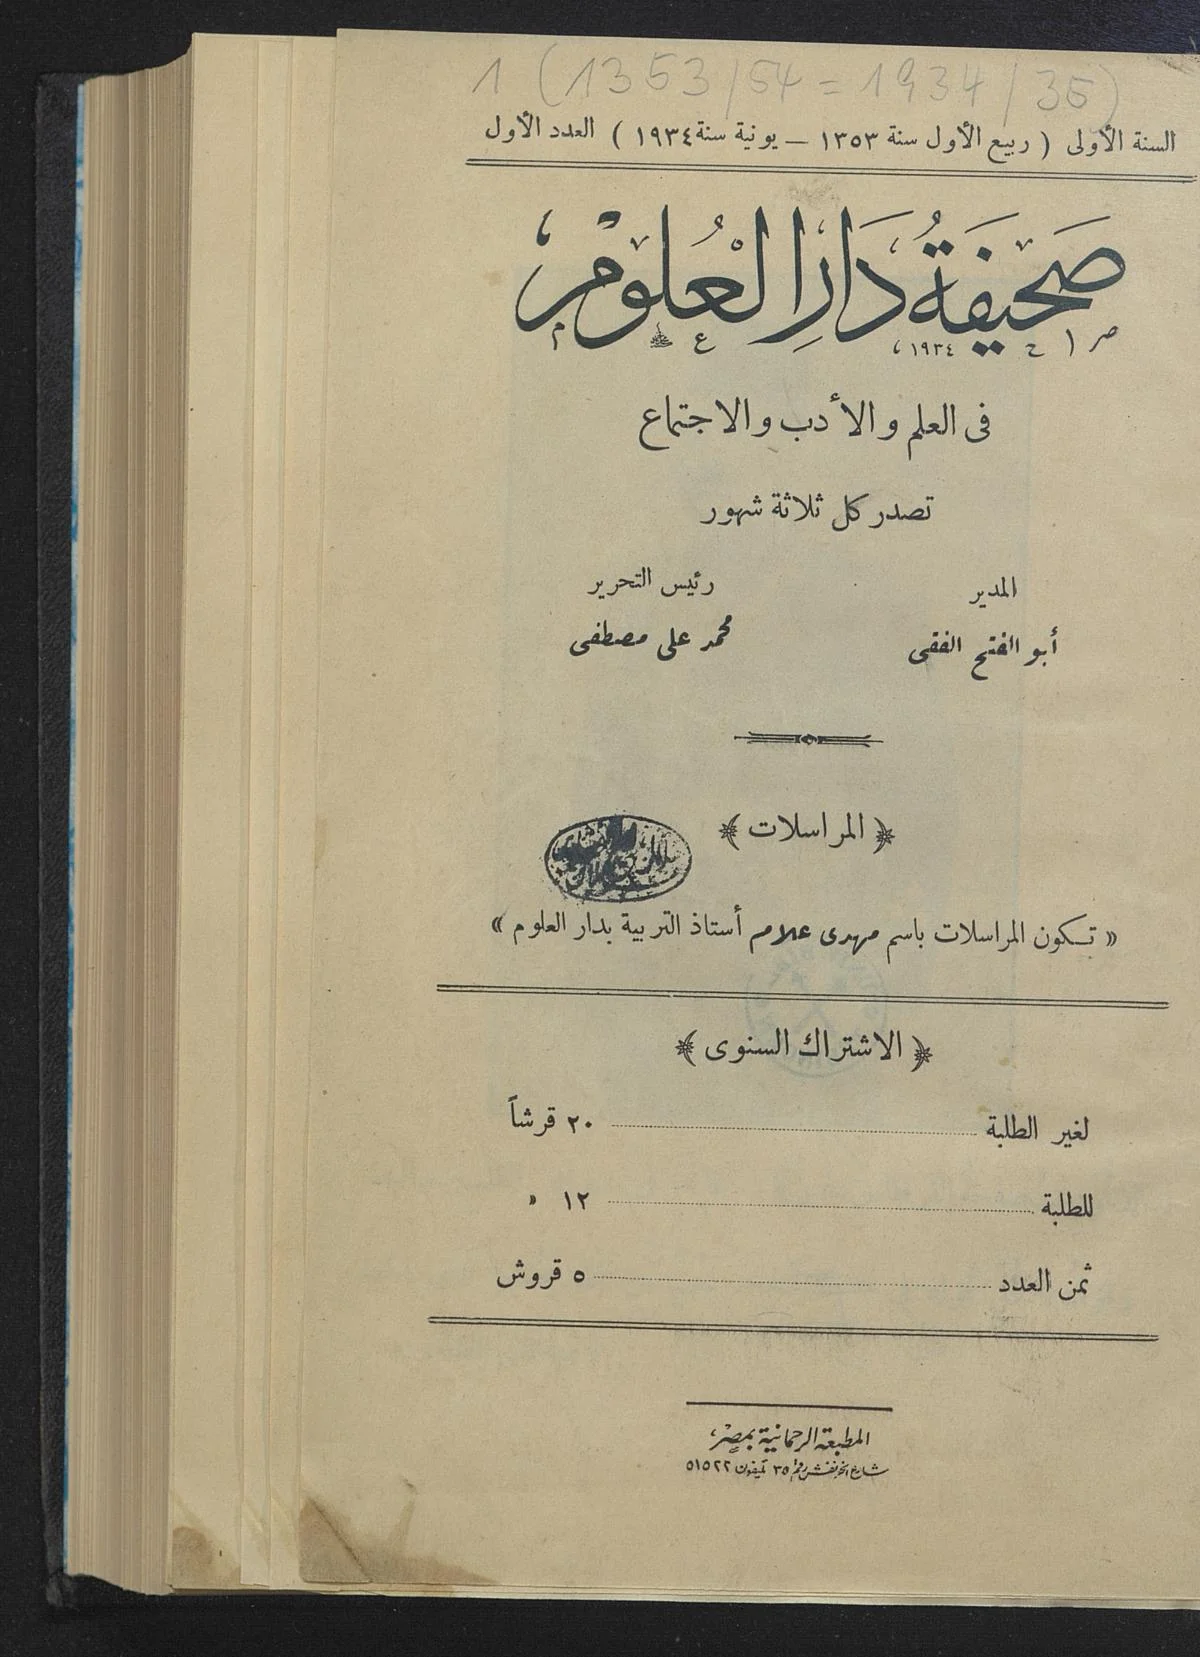 1 (1353/54 = 1934/35)
السنة الأولى ( ربيع الأول سنة ١٣٥٣ — يونية سنة ١٩٣٤ ) العدد الأول
صَحيفَةُ دَارِ العُلومْ
١٩٣٤
فى العلم والأدب والاجتماع
تصدر كل ثلاثة شهور
المدير
رئيس التحرير
أبو الفتح الفقى
محمد على مصطفى
﴿ المراسلات ﴾
« تكون المراسلات باسم مهدى علام أستاذ التربية بدار العلوم »
﴿ الاشتراك السنوى ﴾
لغير الطلبة ٢٠ قرشاً
للطلبة ١٢ »
ثمن العدد ٥ قروش
المطبعة الرحمانية بمصر
شارع الخرنفش رقم ٣٥ تليفون ٥١٥٢٢